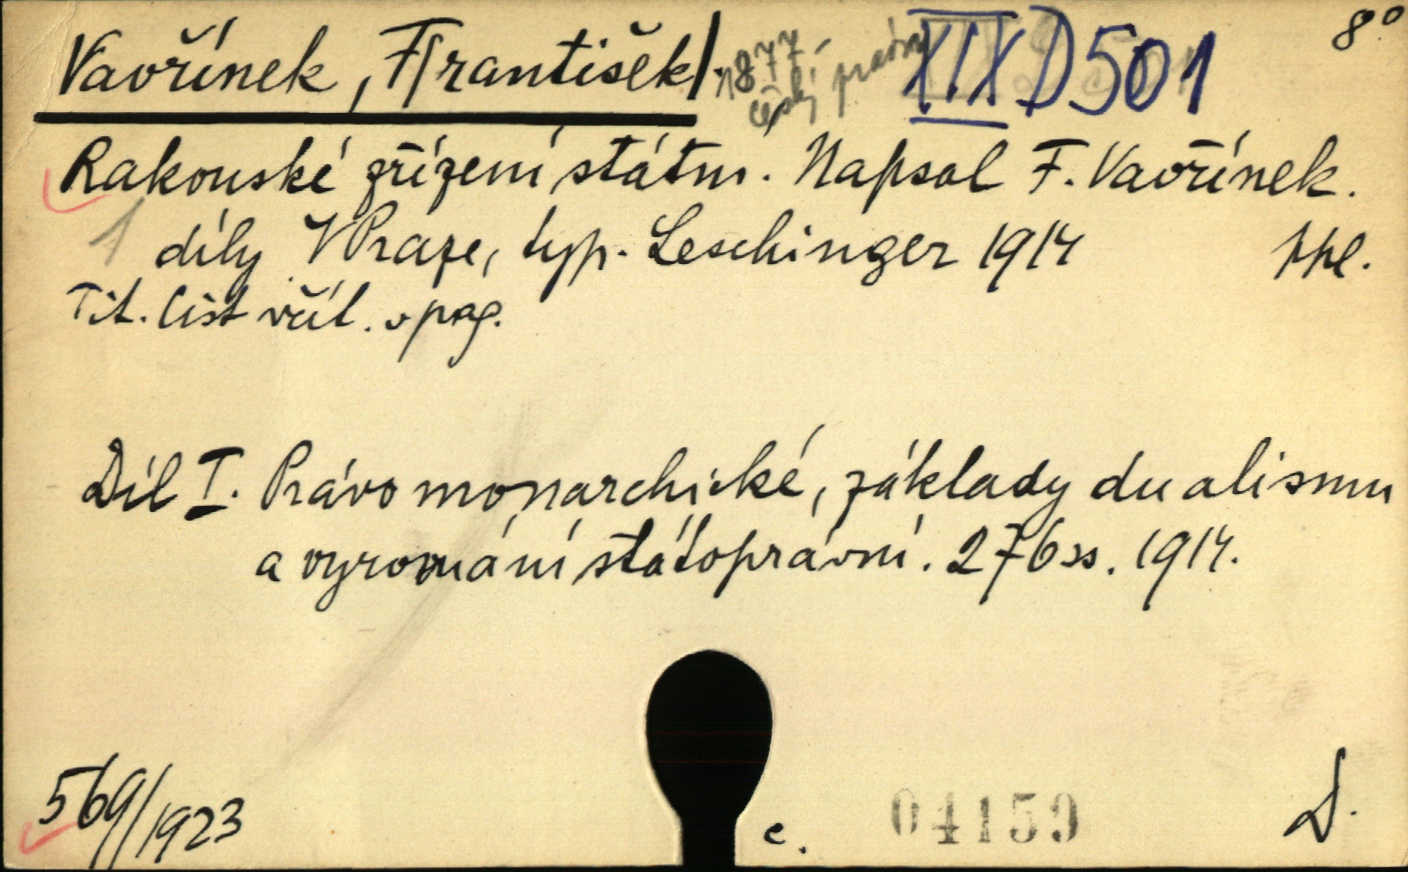 Vavřínek, F[rantišek]. 1877- XIX D 501 8°
český právn
Rakouské zřízení státní. Napsal F. Vavřínek.
1 díly V Praze, typ. Leschinger 1914
Tit. list včít. v pag.
Díl I. Právo monarchické, základy dualismu
a vyrovnání státoprávní. 276 ss. 1914.
569/1923 c. 04159 D.